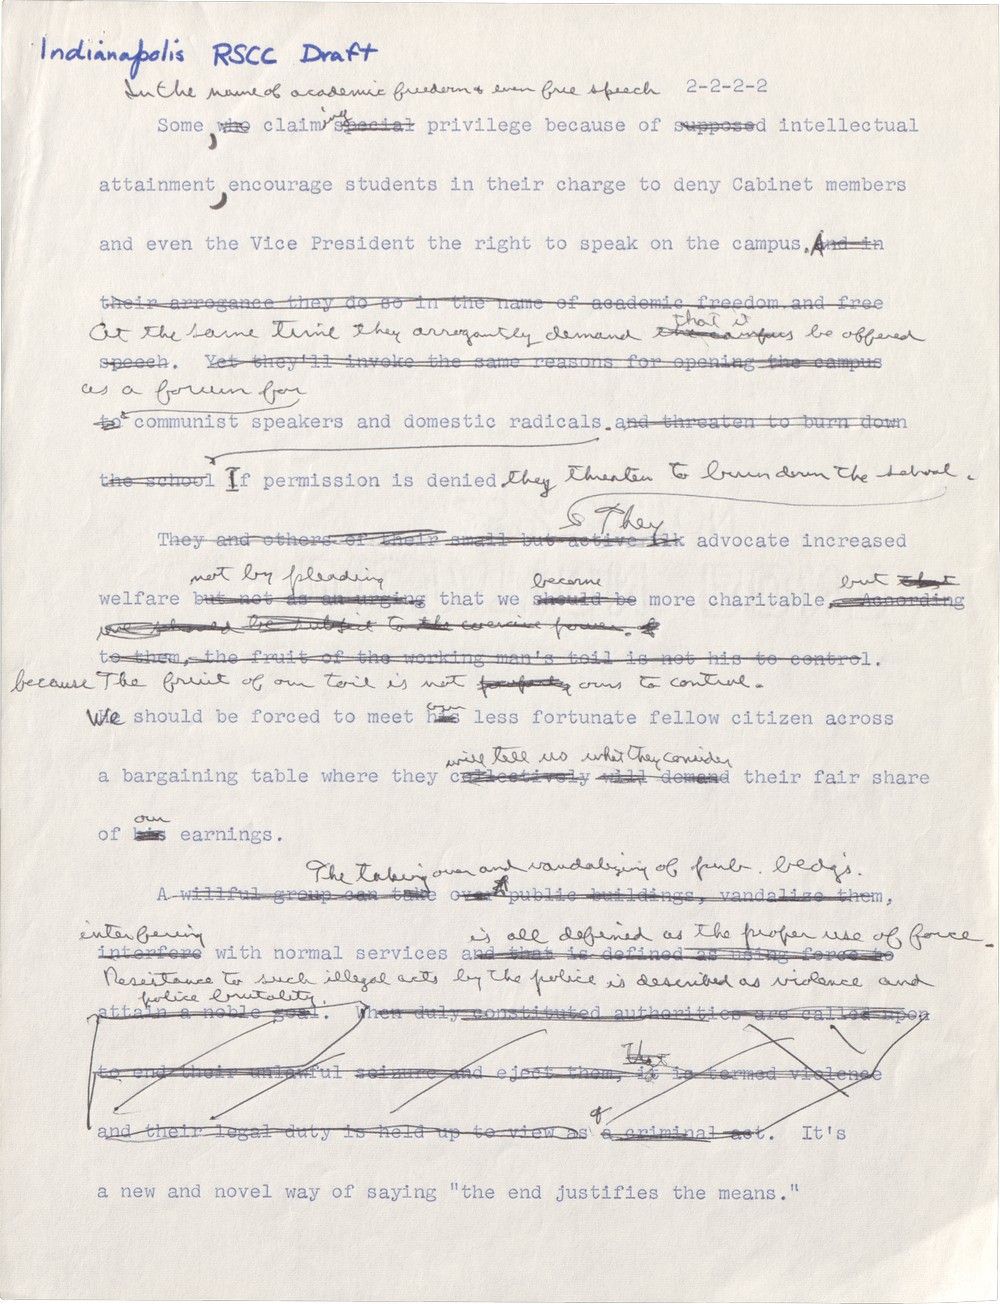 Indianapolis RSCC Draft
In the name of academic freedom & even free speech 2-2-2-2
Some, who claiming special privilege because of supposed intellectual
attainment, encourage students in their charge to deny Cabinet members
and even the Vice President the right to speak on the campus. And in
their arrogance they do so in the name of academic freedom and free
that it
At the same time they arrogantly demand the campus be offered
speech. Yet they'll invoke the same reasons for opening the campus
as a forum for
to communist speakers and domestic radicals. and threaten to burn down
the school If permission is denied, they threaten to burn down the school.
They
They and others of their small but active ilk advocate increased
not by pleading become but that
welfare but not as an urging that we should be more charitable, According
we should be subject to the coercive power.
to them, the fruit of the working man's toil is not his to control.
because The fruit of our toil is not ours to control.
We should be forced to meet his our less fortunate fellow citizen across
will tell us what they consider
a bargaining table where they collectively will demand their fair share
our
of his earnings.
The taking over and vandalizing of pub. bldgs.
A willful group can take over public buildings, vandalize them,
interfering is all defined as the proper use of force.
interfere with normal services and that is defined as using force to
Resistance to such illegal acts by the police is described as violence and
police brutality.
attain a noble goal. When duly constituted authorities are called upon
That
to end their unlawful seizure and eject them, it is termed violence
and their legal duty is held up to view as a criminal act. It's
a new and novel way of saying "the end justifies the means."